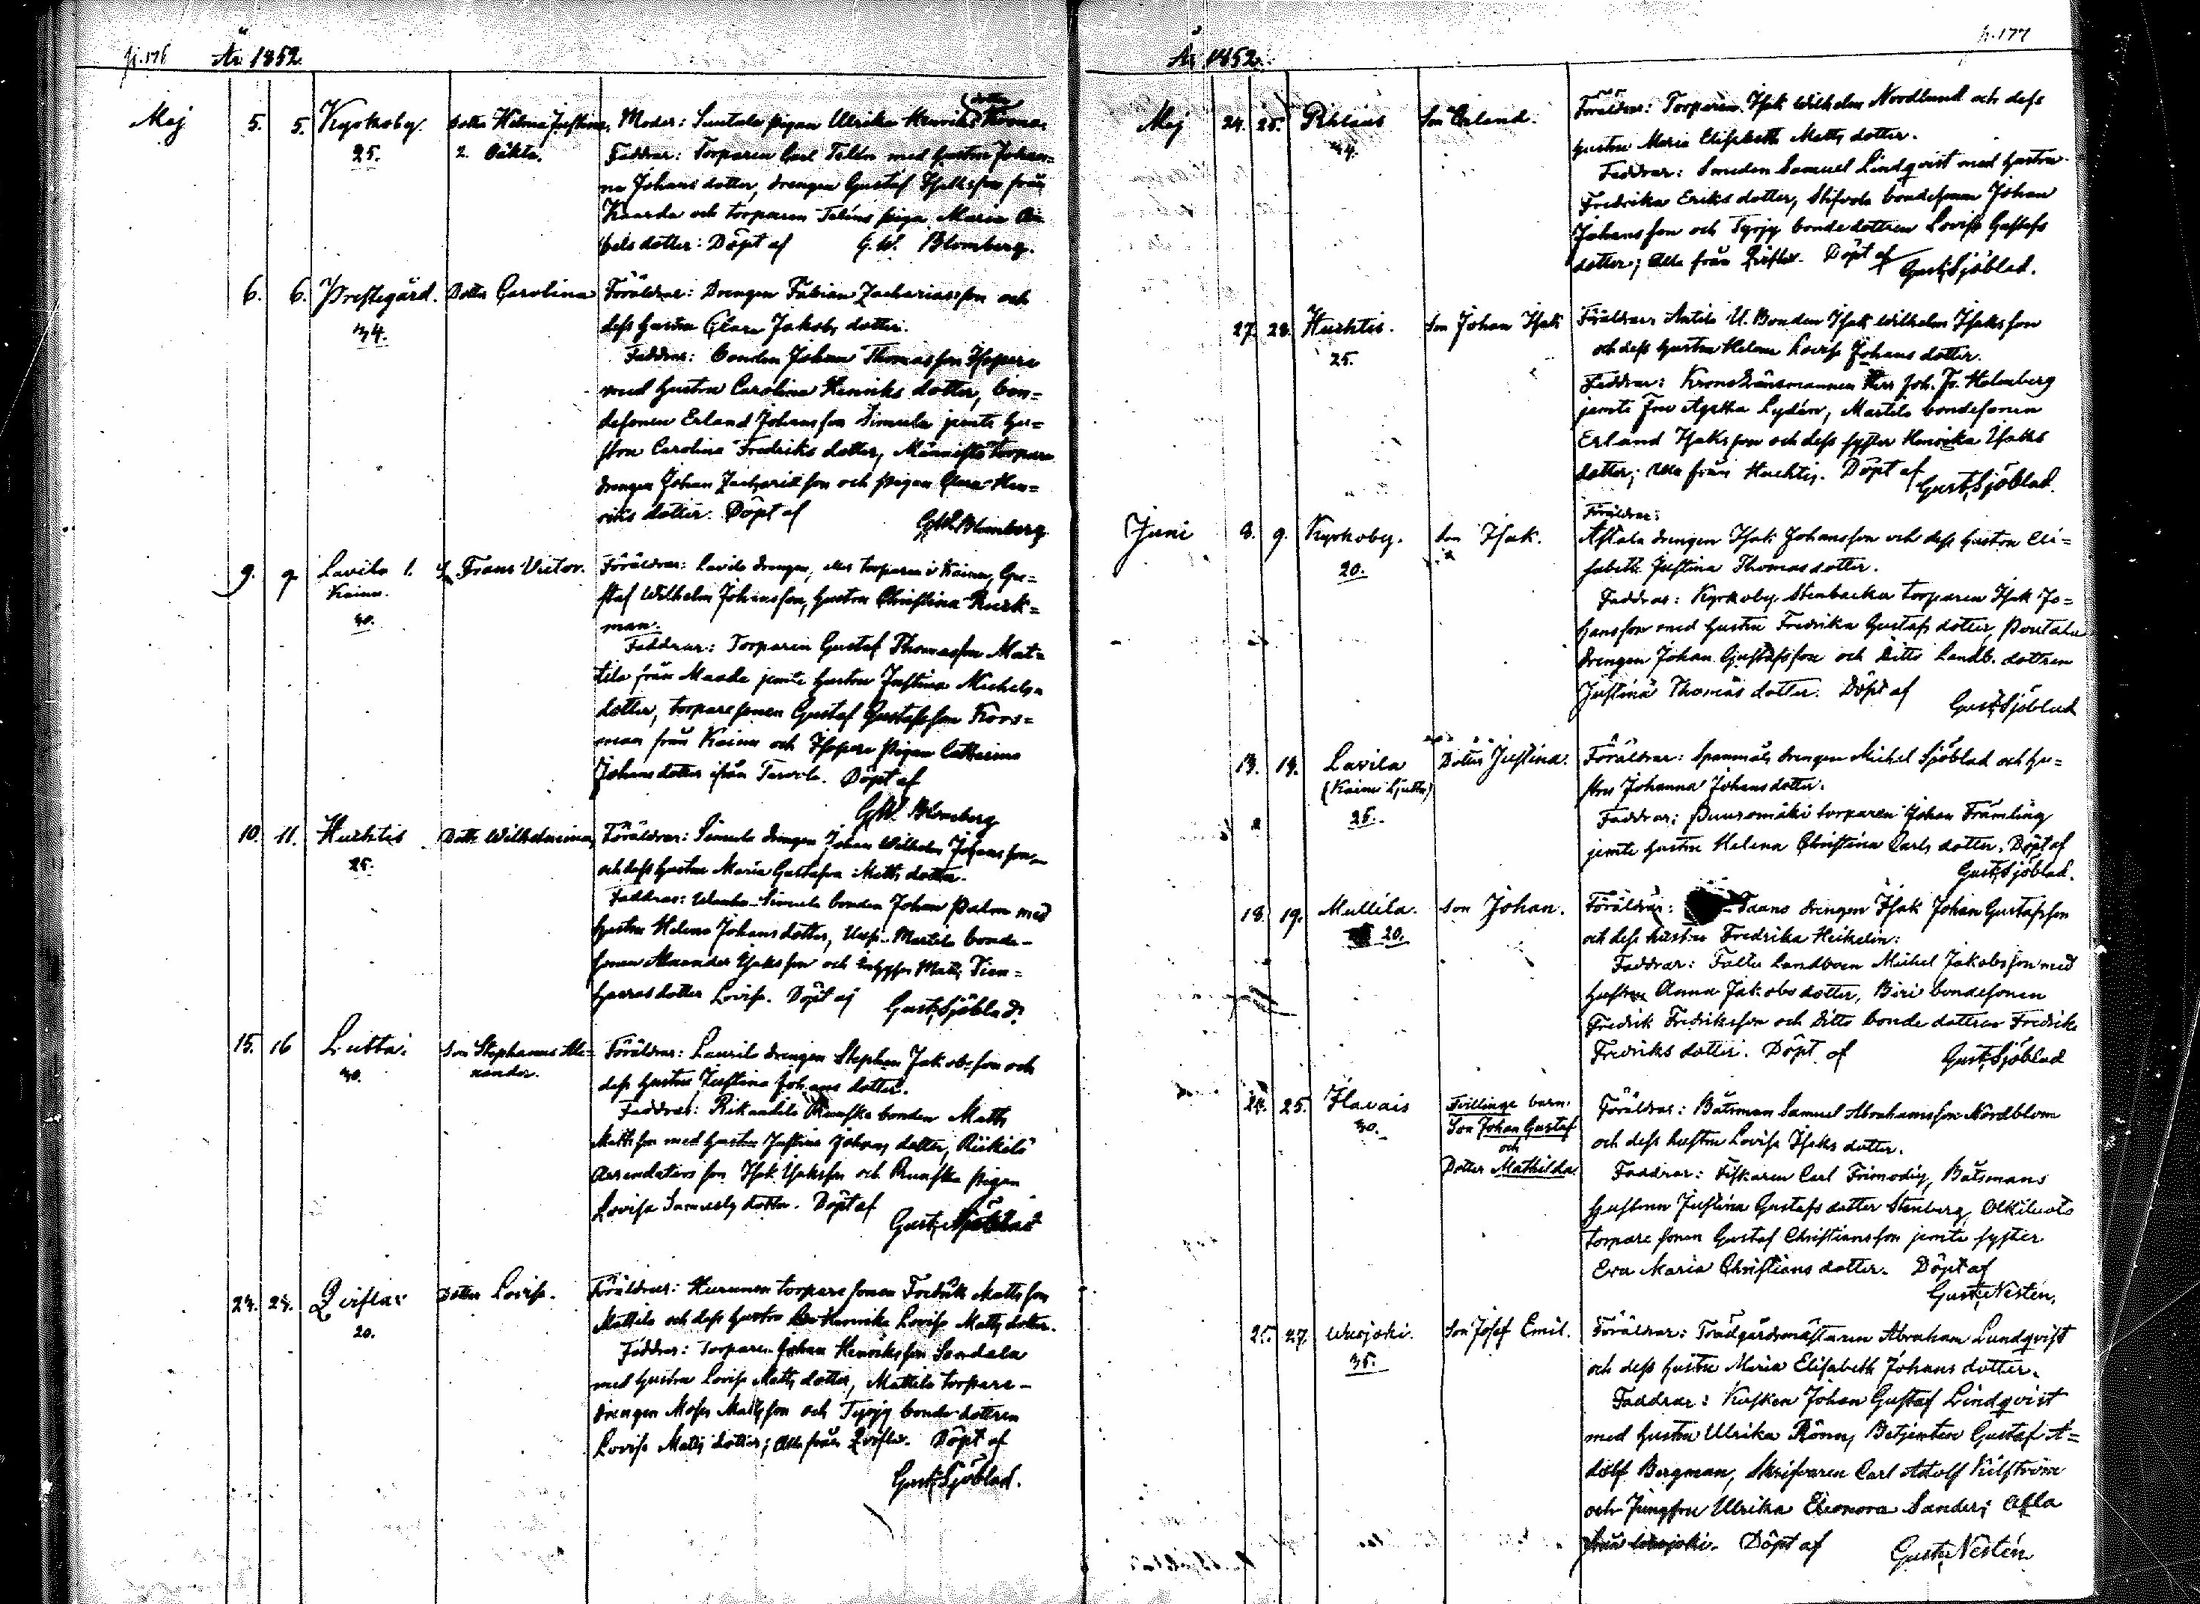 p. 176 År 1852.
Maj 5. 5. Kyrkoby. Dotter Helena Justina, Moder: Suutala pigan Ulrika Henriksdotter
25. 2. Oäkta. Faddrar: Torparen Carl Telén med hustru Johan-
na Johansdotter, drengen Gustaf från
Kaarda och torparen Teléns piga Maria
dotter: Döpt af G. W. Blomberg.
6. 6. Prestegård. Dotter Carolina Föräldrar: Drengen Fabian Zachariasson och
34. dess hustru Clara Jakobs dotter.
Faddrar: bonden Johan Thomasson Isopere
med hustru Carolina Henriks dotter, bon-
desonen Erland Johansson Simula jemte hu-
stru Carolina Fredriks dotter, Männistö torpare
drengen Johan Zachariasson och pigan Clara Hen-
riks dotter. Döpt af GW. Blomberg
9. 9. Lavila 1. S. Frans Victor. Föräldrar: Lavila drengen, eller torparen i Kainu, Gu-
Kainu. staf Wilhelm Johansson, hustru Christina Kusk-
30. man.
Faddrar: Torparen Gustaf Thomasson Mat-
tila från Masda jemte hustru Justina Michels-
dotter, torparesonen Gustaf Gustafsson Kors-
man från Kainu och Isopere pigan Catharina
Johansdotter ifrån Tarvola. Döpt af
GW. Blomberg
10. 11. Huchtis Dotter Wilhelmina, Föräldrar: Simula drengen Johan Wilhelm Johansson
25. och dess hustru Maria Gustafva Matts dotter.
Faddrar: Simula bonden Johan Palm med
hustru Helena Johans dotter, Martila bonde-
sonen Alexander Isaksson och Matts
dotter Lovisa. Döpt af Gust. Sjöblad.
15. 16 Lutta. Son Stephanus Ale- Föräldrar: Laurila drengen Stephan Jakobsson och
30. xander. dess hustru Justina Johans dotter.
Faddrar: bonden Matts
Mattsson med hustru Justina Johans dotter,
son Isak Isaksson och pigan
Lovisa Samuels dotter. Döpt af Gust. Sjöblad
24. 24. Qvistar Dotter Lovisa. Föräldrar: torpare sonen Fredrik Mattsson
20. Mattila och dess hustru Henrika Lovisa Matts dotter.
Faddrar: Torparen Johan Henriksson Sandala
med hustru Lovisa Matts dotter, Mattila torpare-
drengen Moses Mattsson och Tyrjy bonde dottren
Lovisa Matts dotter; Alla från Döpt af
Gust. Sjöblad.
p. 177
År 1852.
Maj 24. 25. Son Erland. Föräldrar: Torparen Isak Wilhelm Nordlund och dess
34. hustru Maria Elisabeth Matts dotter.
Faddrar: Smeden Samuel Lindqvist med hustru
Fredrika Eriks dotter, bondesonen Johan
Johansson och Tyrjy bonde dottren Lovisa Gustafs
dotter; Alla från Döpt af Gust. Sjöblad.
27. 28. Huchtis. Son Johan Isak Föräldrar: Antila U. Bonden Isak Wilhelm Isaksson
25. och dess hustru Helena Lovisa Johans dotter.
Faddrar: Kronolänsmannen Herr Joh. Fr. Holmberg
jemte Fru Agatha Lydén, Martila bondesonen
Erland Isaksson och dess syster Henrika Isaks
dotter; Alla från Huchtis. Döpt af Gust. Sjöblad.
Föräldrar:
Juni 8. 9. Kyrkoby. Son Isak. Astala drengen Isak Johansson och dess hustru Eli-
20. sabeth Justina Thomasdotter.
Faddrar: Kyrkoby Stenbacka torparen Isak Jo-
hansson med hustru Fredrika Gustafs dotter, Pentala
drengen Johan Gustafsson och Ditto Landb. dottren
Justina Thomas dotter. Döpt af Gust. Sjöblad
13. 13. Lavila Dotter Justina. Föräldrar: Spannmåls drengen Michel Sjöblad och hu-
(Kainu ) stru Johanna Johansdotter.
25. Faddrar: Puuromäki torparen Johan Främling
jemte hustru Helena Christina Carls dotter. Döpt af
Gust. Sjöblad.
18. 19. Mullila. Son Johan. Föräldrar: drengen Isak Johan Gustafsson
20. och dess hustru Fredrika Heikelin:
Faddrar: Landboen Michel Jakobsson med
hustru Anna Jakobs dotter, Biri bondesonen
Fredrik Fredriksson och Ditto bonde dottren Fredrika
Fredriks dotter. Döpt af Gust. Sjöblad
24. 25. Ilavais Tvillinge barn: Föräldrar: Båtsman Samuel Abrahamsson Nordblom
30. Son Johan Gustaf och dess hustru Lovisa Isaks dotter.
och
Dotter Mathilda. Faddrar: Fiskaren Carl Frimodig, Båtsmans
hustrun Justina Gustafs dotter Stenberg, Olkiluoto
torpare sonen Gustaf Christiansson jemte syster
Eva Maria Christians dotter. Döpt af
Gust. Nestén.
25. 27. Wuojoki. Son Josef Emil. Föräldrar: Trädgårdsmästaren Abraham Lundqvist
35. och dess hustru Maria Elisabeth Johans dotter.
Faddrar: Kusken Johan Gustaf Lindqvist
med hustru Ulrika Rönn, Betjenten Gustaf A-
dolf Bergman, Skrifvaren Carl Adolf
och Jungfru Ulrika Eleonora Sander; Alla
från Wuojoki. Döpt af Gust. Nestén